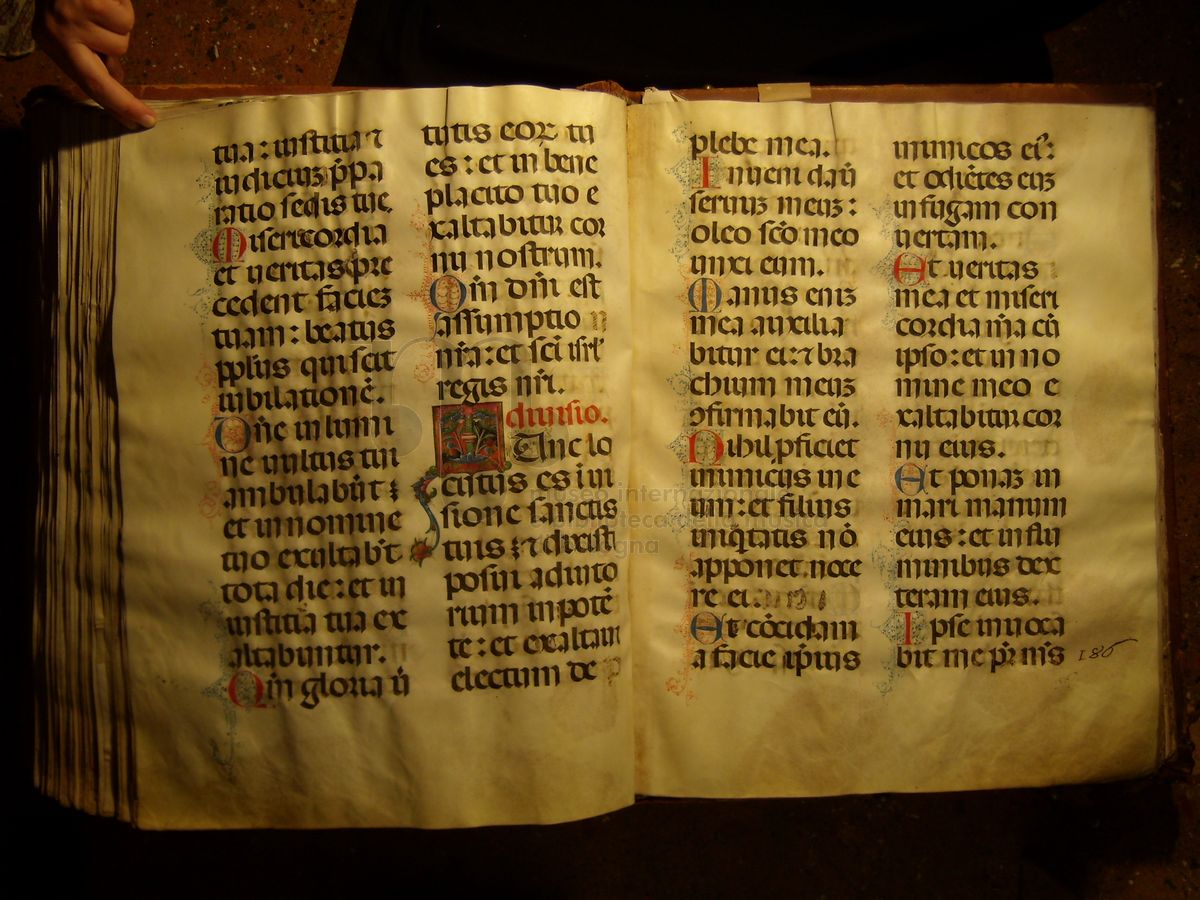 tua: iustitia ⁊
iudiciuz p̄pa
ratio sedis tue.
Misericordia
et ueritas p̄re
cedent faciez
tuam: beatus
pplus qui scit
iubilationē.
Dn̄e in lumi
ne uultus tui
ambulabūt:
et in nomine
tuo exultabt̄
tota die: et in
iustitia tua ex
altabuntur.
Qm̄ gloria ū
tutis eoꝝ tu
es: et in bene
placito tuo e
xaltabitur cor
nu nostrum.
Qm̄ dn̄i est
assumptio
nr̄a: et sc̄i isrl'
regis nr̄i.
diuisio.
Tunc lo
cutus es in ui
sione sanctis
tuis: ⁊ dixisti
posui adiuto
rium in potē
te: et exaltaui
electum de
plebe mea.
Inueni dauid̄
seruuz meuz:
oleo sc̄o meo
unxi eum.
Manus eniz
mea auxilia
bitur ei: ⁊ bra
chium meuz
ↄfirmabit eū.
Nihil p̄ficiet
inimicus in e
um: et filius
iniq̄tatis nō
apponet noce
re ei.
Et cōcidam
a facie ip̄ius
inimicos ei᷒:
et odiētes euz
in fugam con
uertam.
Et ueritas
mea et miseri
cordia m̄a cū
ipso: et in no
mine meo e
xaltabitur cor
nu eius.
Et ponaz in
mari manum
eius: et in flu
minibus dex
teram eius.
Ipse inuoca
bit me pr̄ m̄s
186
museo internazionale
biblioteca della musica